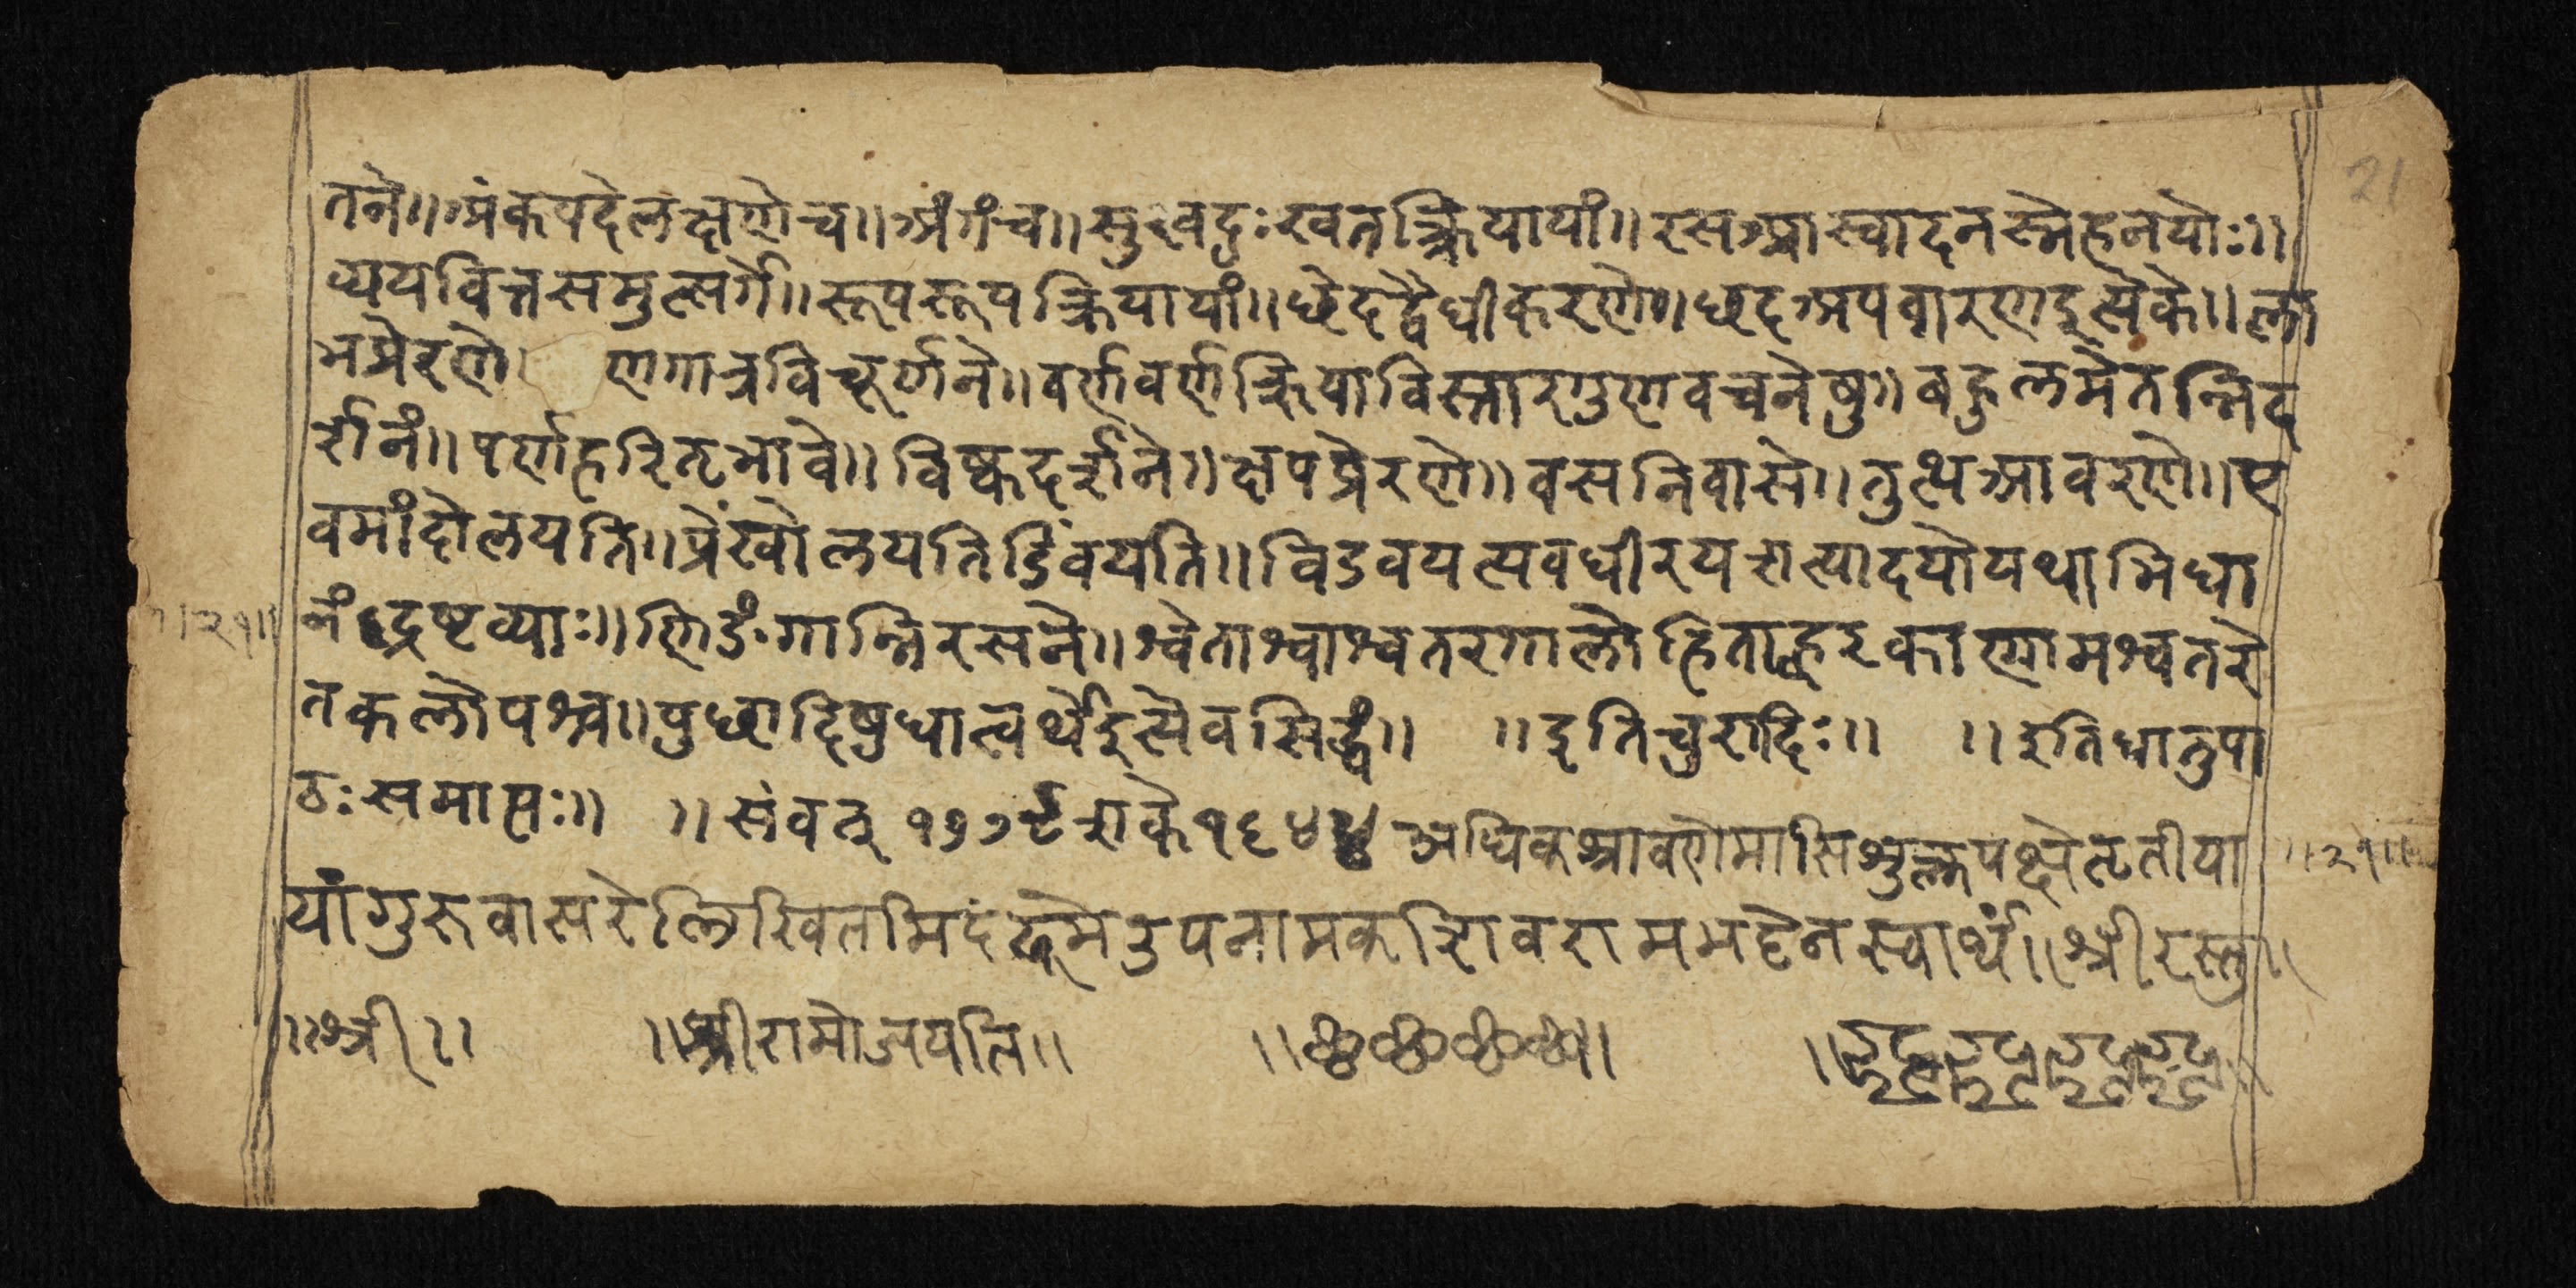 21
तने॥अंकपदेलक्षणेच॥अंगंच॥सुखदुःखतत्क्रियायां॥रसआस्वादनस्नेहनयोः॥
व्ययवित्तसमुत्सर्गे॥रूपरूपक्रियायां॥छेदद्वैधीकरणे॥छदअपवारणइत्येके॥ला
भप्रेरणे। णगात्रविचूर्णने॥वर्णवर्णक्रियाविस्तारगुणवचनेषु॥बहुलमेतन्निद
र्शनं॥पर्णहरितभावे॥विष्कदर्शने॥क्षपप्रेरणे॥वसनिवासे॥तुत्थआवरणे॥ए
वमांदोलयति॥प्रेंखोलयतिडिंवयति॥विडवयत्यवधीरयत्यादयोयथाभिधा
नंद्रष्टव्याः॥णिङंगान्निरसने॥श्वेताश्वाश्वतरगालोहिताह्वरकाणामश्वतरे
॥२१॥
तकलोपश्च॥पुछादिषुधात्वर्थेइत्येवसिद्धं॥ ॥इतिचुरादिः॥ ॥इतिधातुपा
ठःसमाप्तः॥ ॥संवत् १७७९शके१६४४ अधिकश्रावणेमासिशुक्लपक्षेतृतीया
॥२१॥
यांगुरुवासरेलिखितमिदं उपनामकशिवरामभट्टेनस्वार्थं॥श्रीरस्तु॥
॥श्री॥ ॥श्रीरामोजयति॥ ॥छ॥छ॥छ॥छ॥